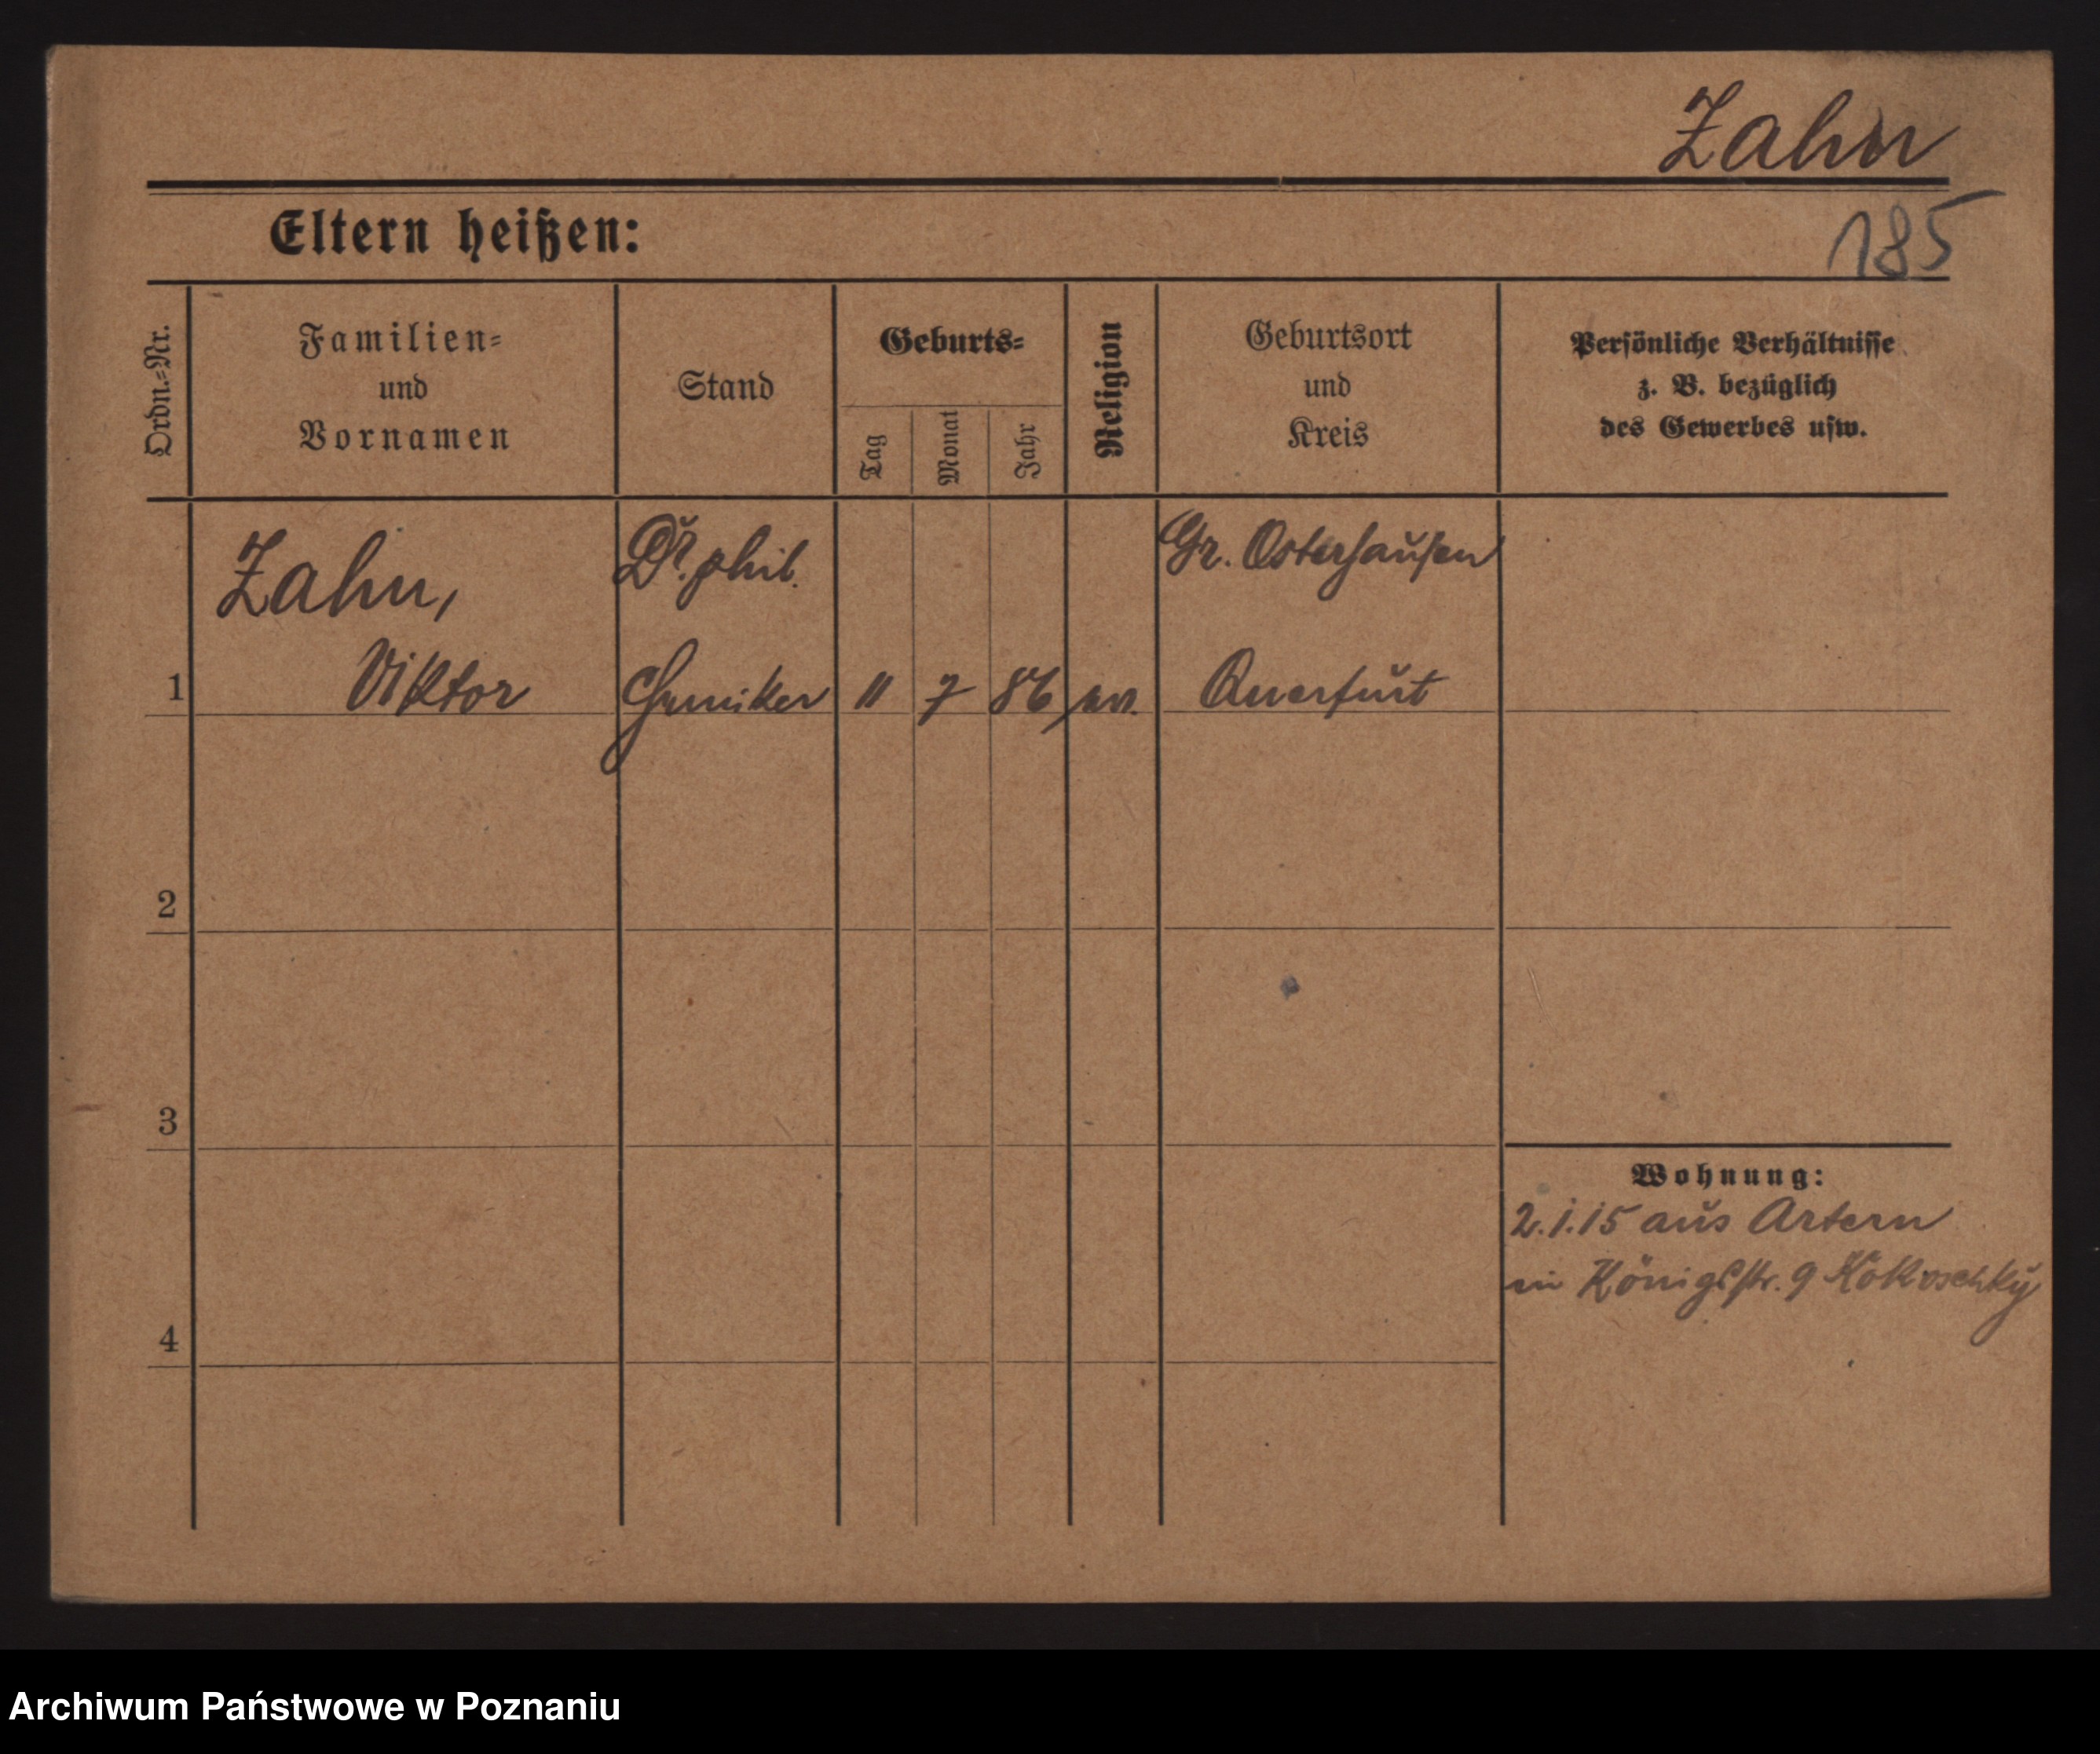 Zahn
185
Eltern heißen:
Ordn.-Nr.
Familien-
und
Vornamen
Stand
Geburts-
Tag
Monat
Jahr
Religion
Geburtsort
und
Kreis
Persönliche Verhältnisse
z. B. bezüglich
des Gewerbes usw.
Zahn, Dr. phil. Gr. Osterhausen
1 Viktor Chemiker 11 7 86 ev. Querfurt
2
3
Wohnung:
2.1.15 aus Artern
in Königstr. 9 Kokoschky
4
Archiwum Państwowe w Poznaniu